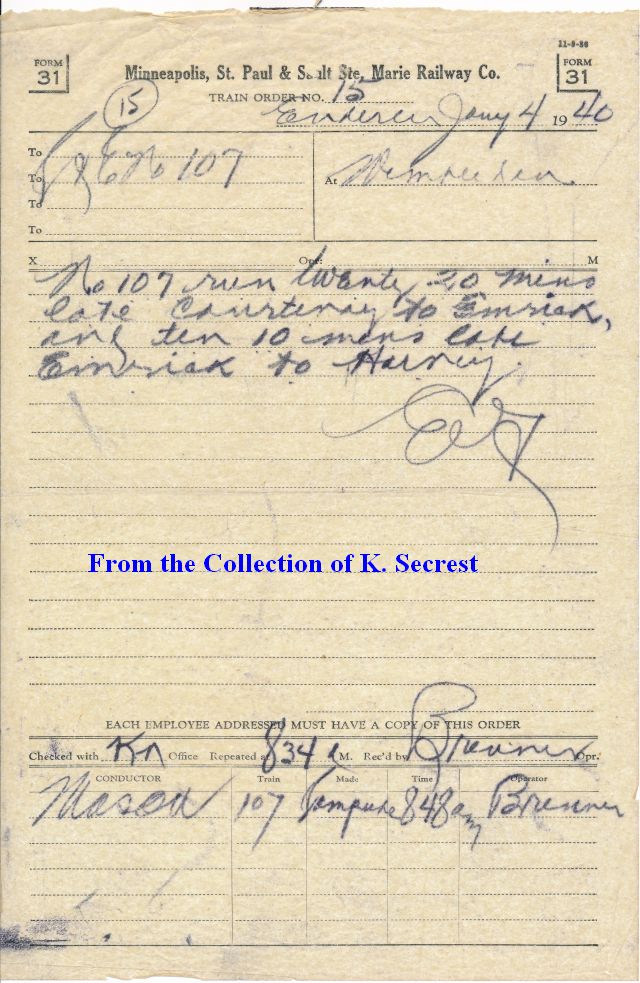 11-9-36
FORM 31
Minneapolis, St. Paul & Sault Ste. Marie Railway Co.
FORM 31
15
TRAIN ORDER NO. 15
Enderlin Jany 4 1940
To C & E No 107
To
To
To
At Wimbledon
X Opr. M
No 107 run twenty 20 mins
late Courtenay to Emrick,
and ten 10 mins late
Emrick to Harvey.
From the Collection of K. Secrest
EACH EMPLOYEE ADDRESSED MUST HAVE A COPY OF THIS ORDER
Checked with Office Repeated at 834 a M. Rec'd by Brenner Opr.
CONDUCTOR Train Made Time Operator
Mason 107 Complete 848 am Brenner